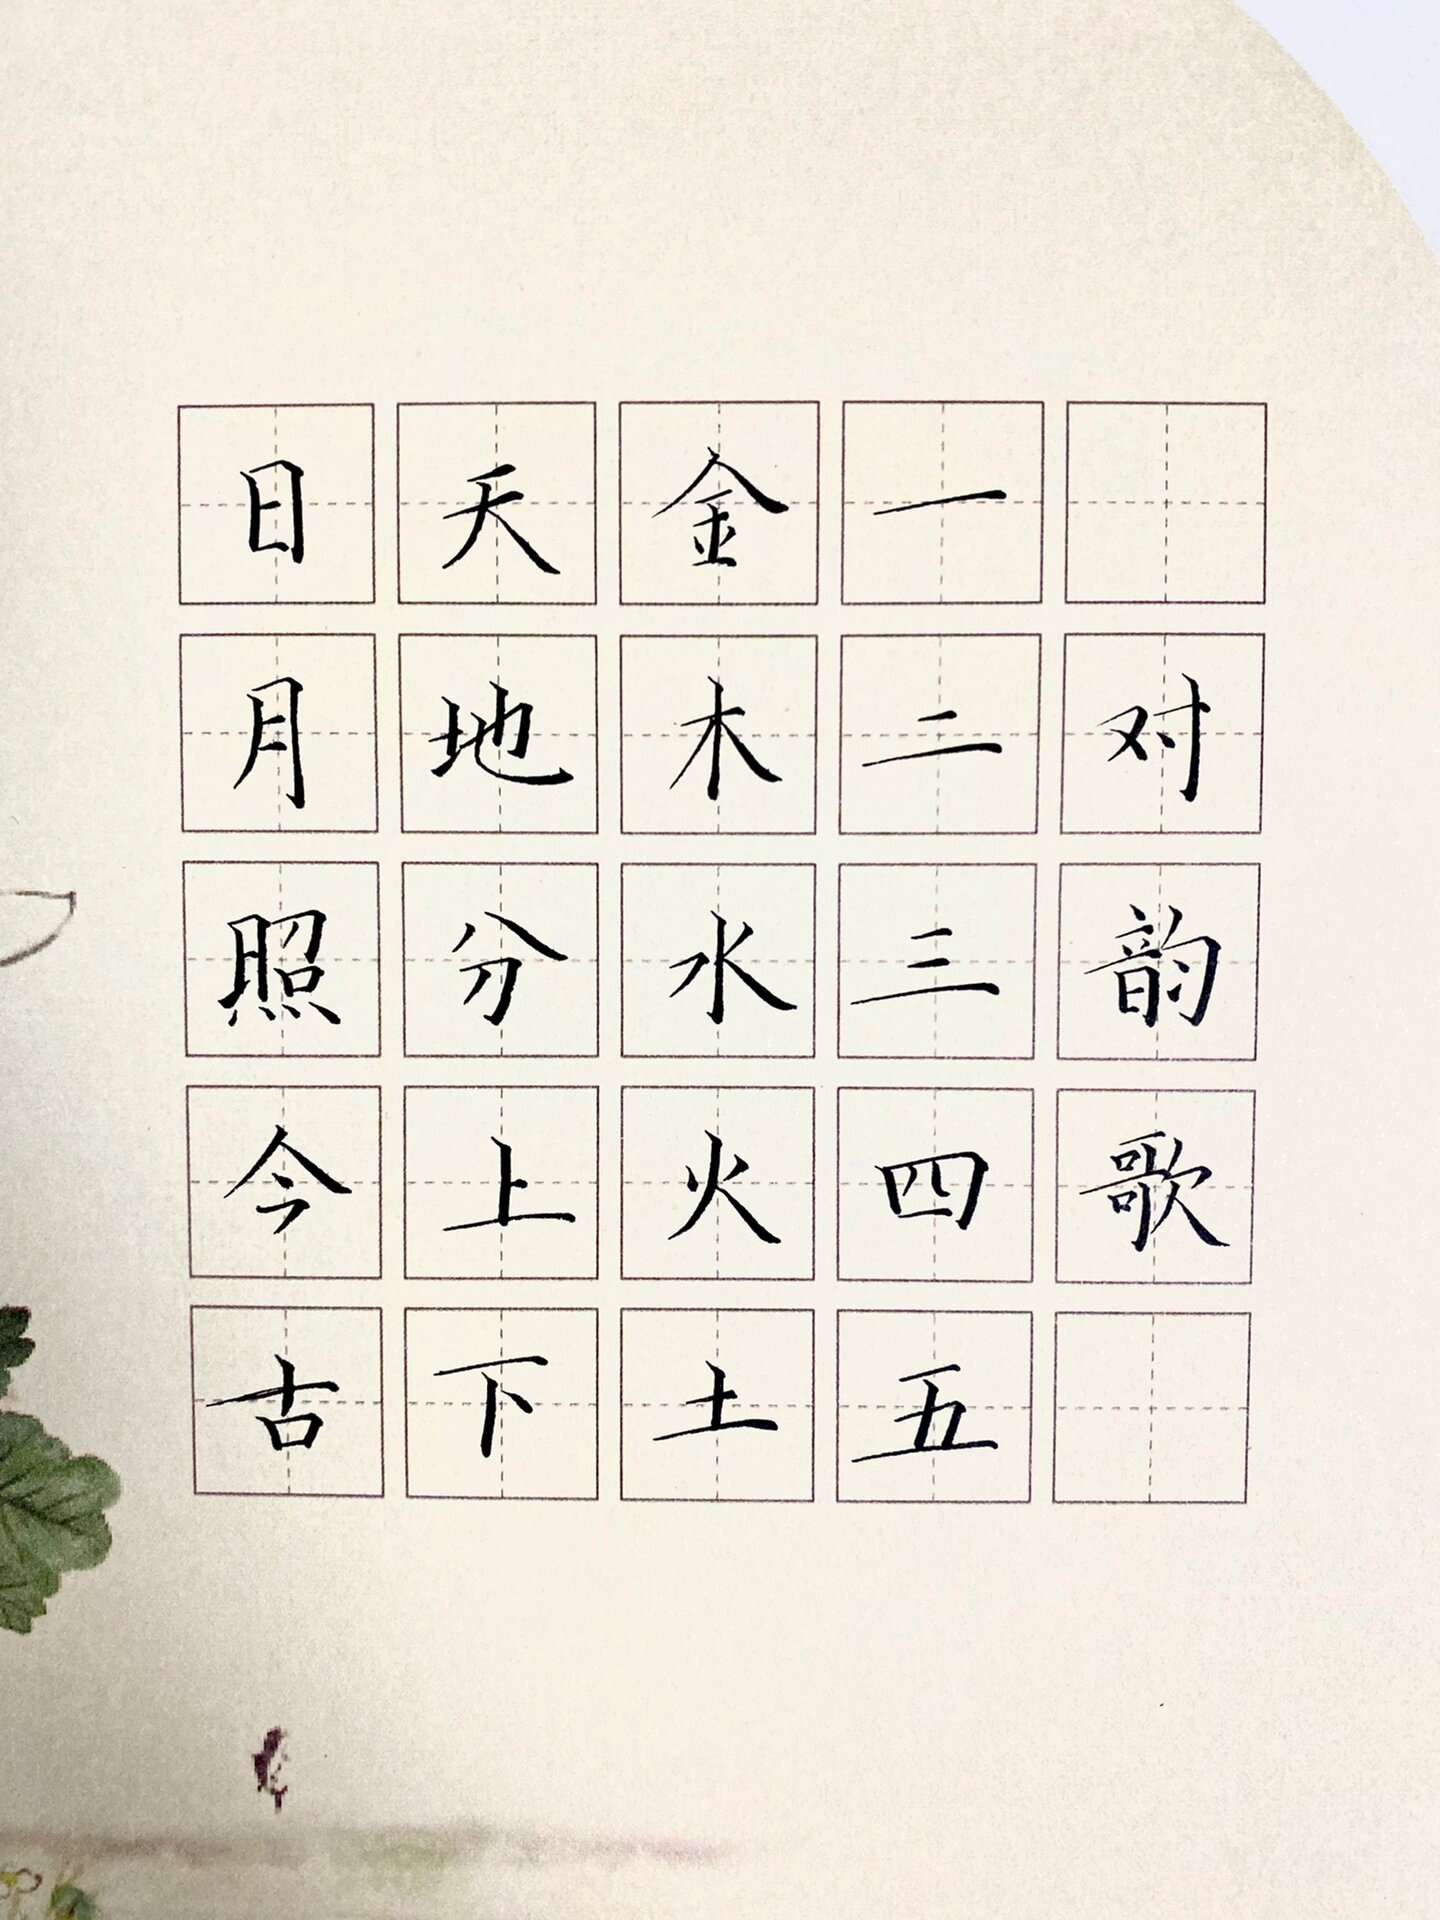 对韵歌
一二三四五
金木水火土
天地分上下
日月照今古